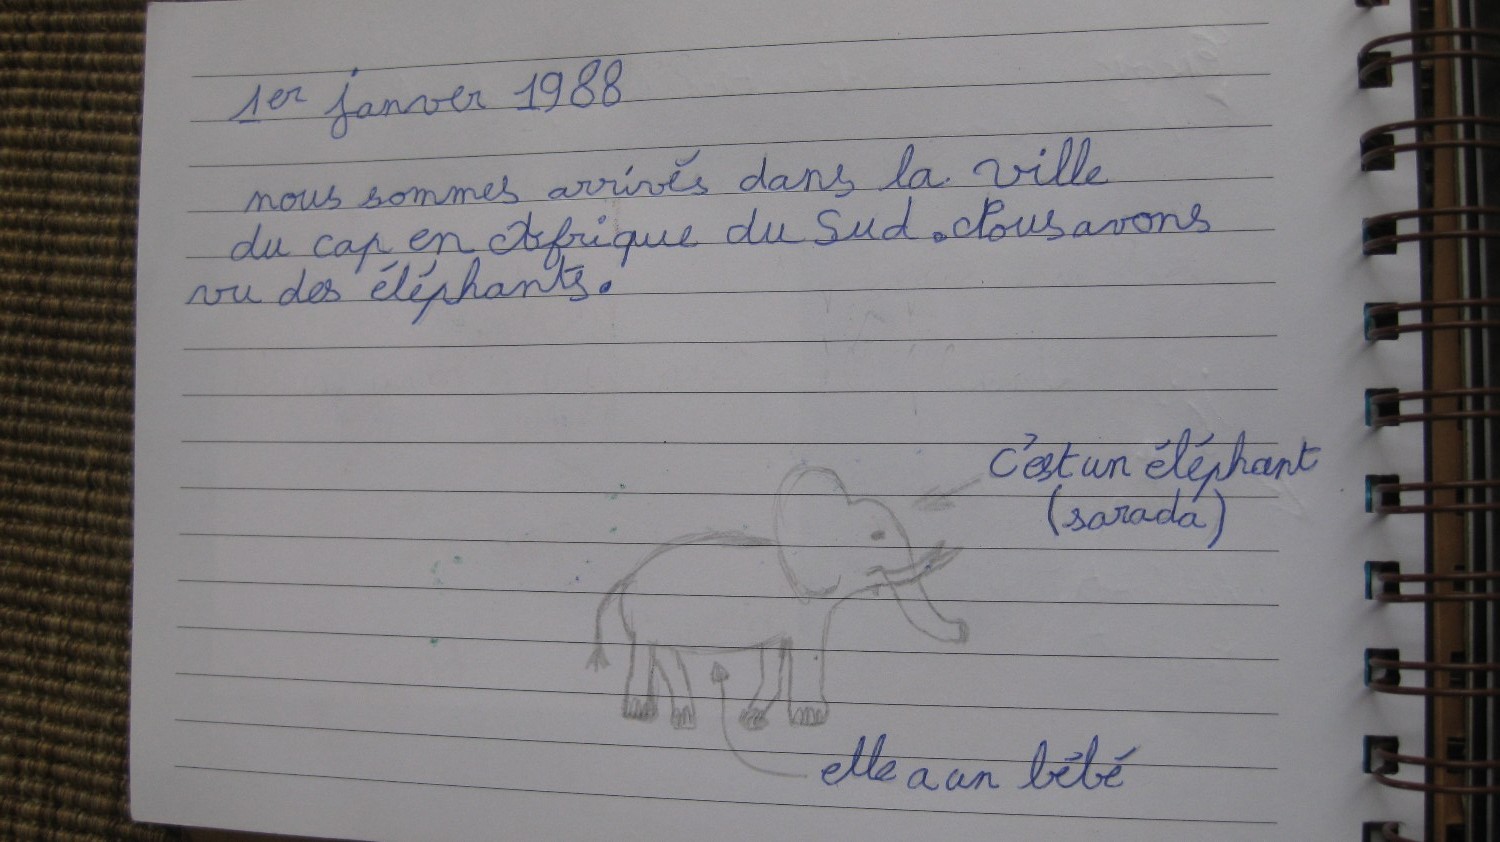 1er janver 1988
nous sommes arrivés dans la ville
du cap en Afrique du Sud. Nous avons
vu des éléphants.
C'est un éléphant
(sarada)
elle a un bébé